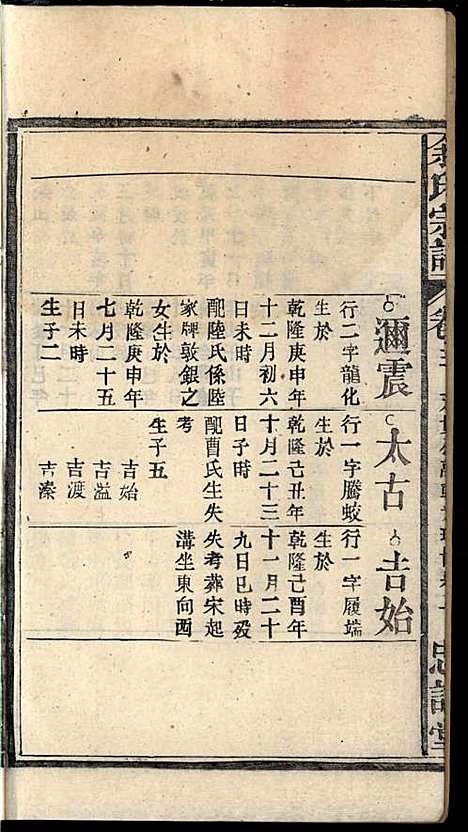 余氏宗譜
卷
忠
堂
邇震
行二字龍化
生於
乾隆庚申年
十二月初六
日未時
配陸氏係陸
家牌敦銀之
女生於
乾隆庚申年
七月二十五
日未時
生子二
太古
行一字騰蛟
生於
乾隆己丑年
十月二十三
日子時
配曹氏生失
考
生子五
吉始
吉溢
吉渡
吉溱
吉始
行一字履端
生於
乾隆己酉年
十一月二十
九日巳時殁
失考葬宋起
溝坐東向西